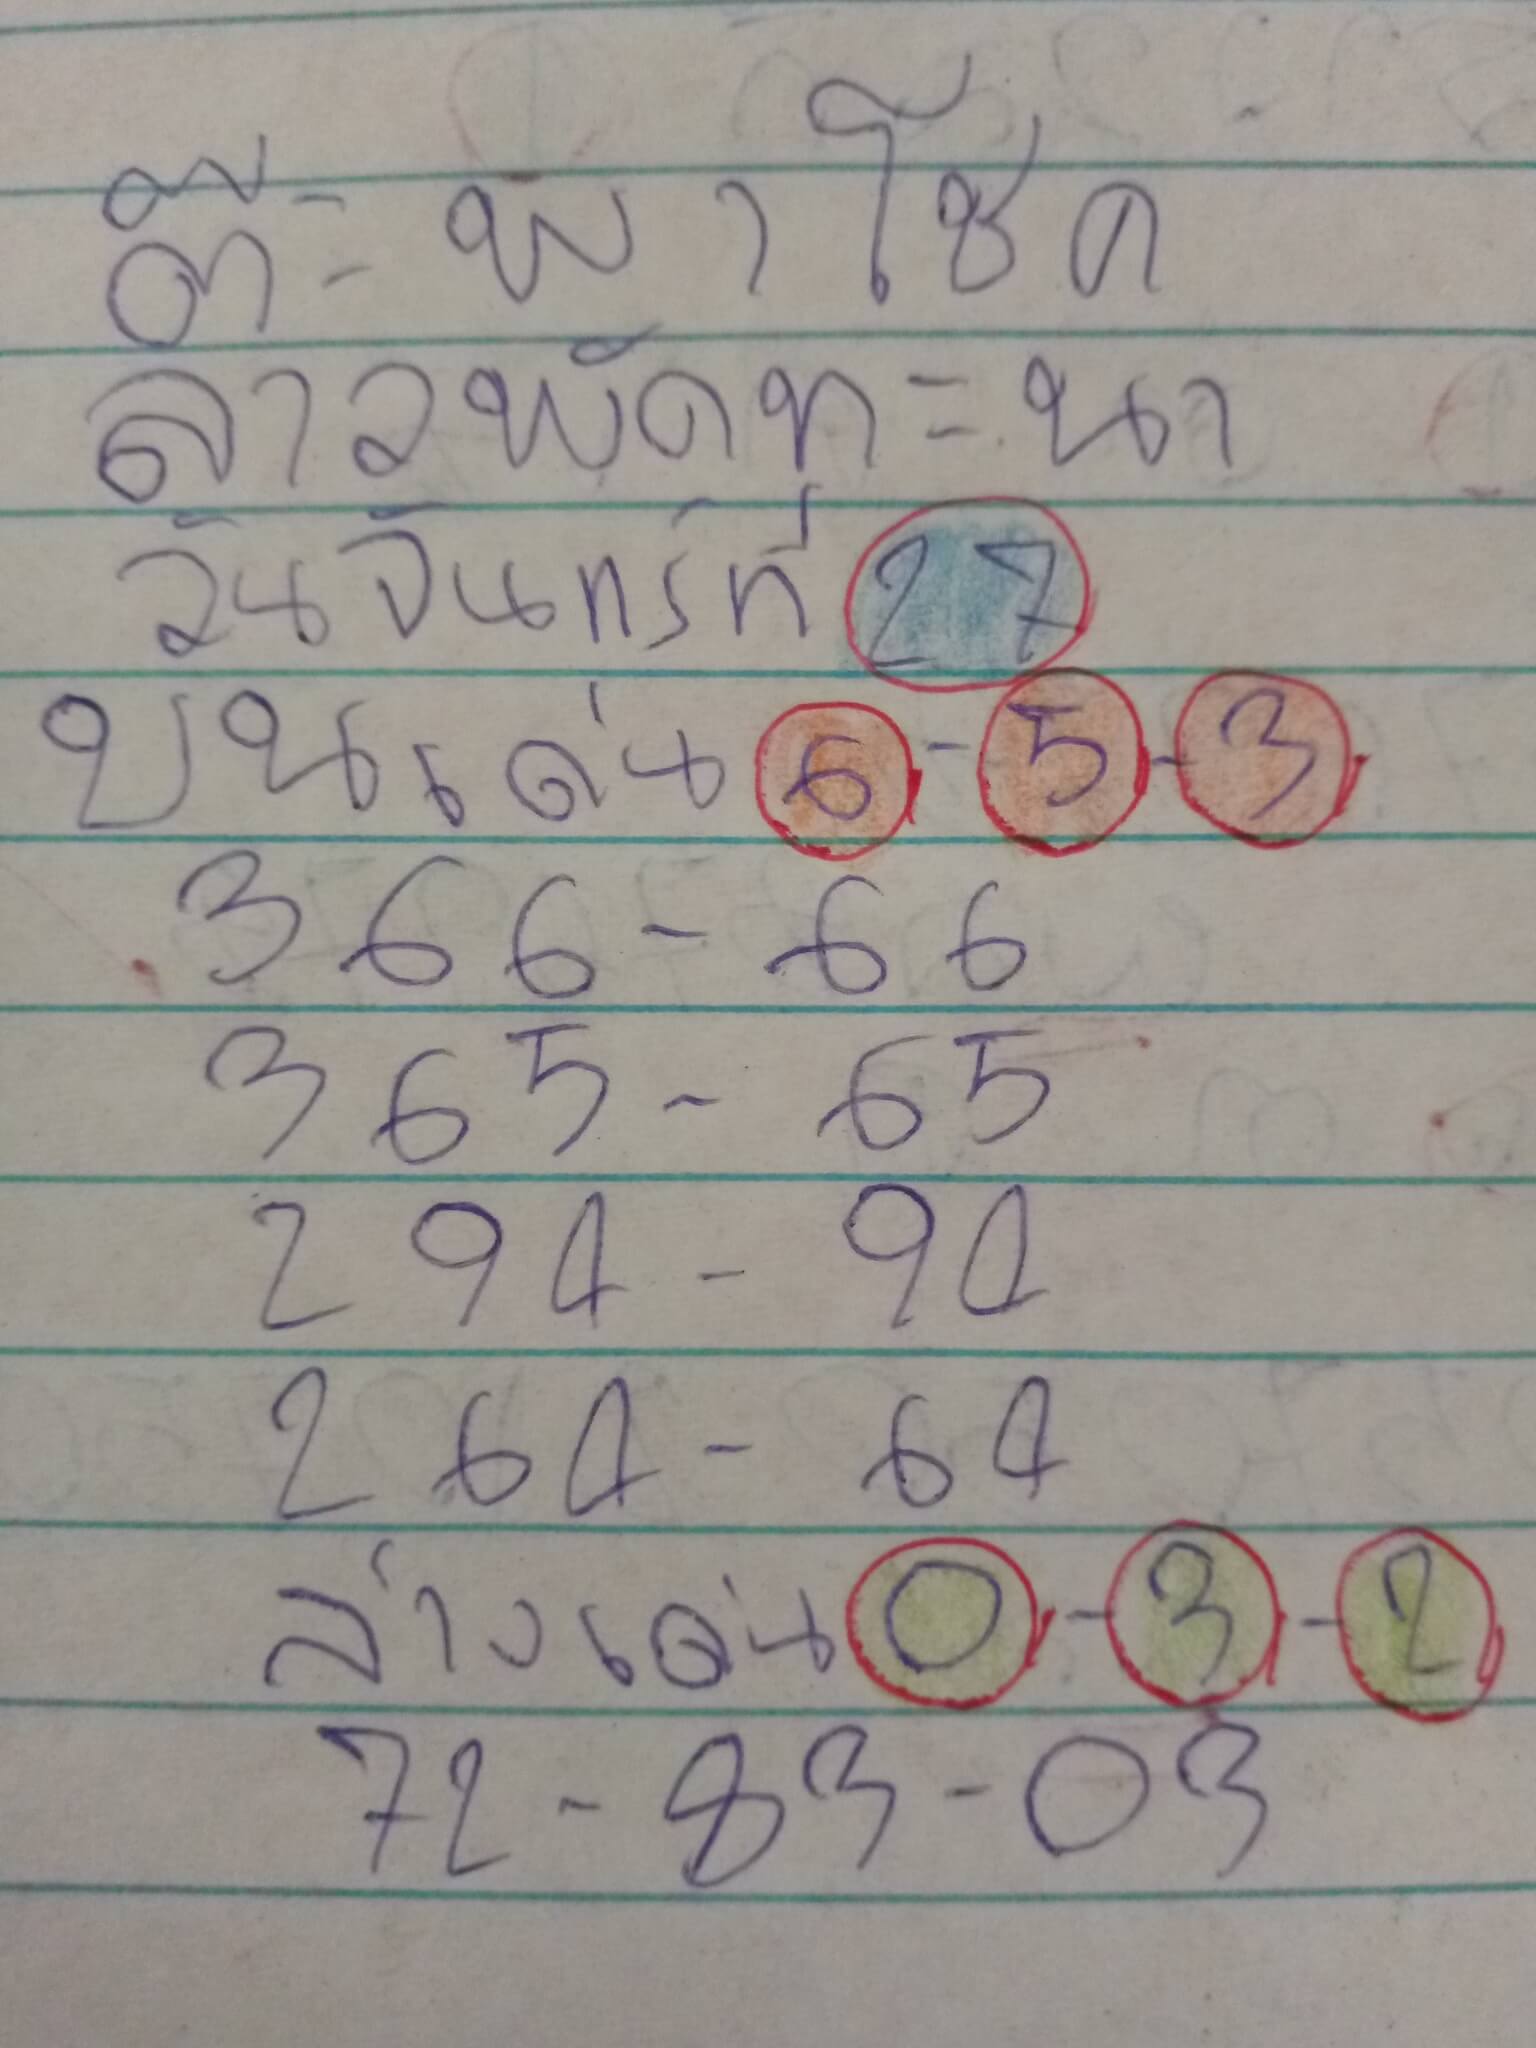 ต๊ะ พาโชค
ลาวพัดทะนา
วันจันทร์ที่ 27
บนเด่น 6-5-3
366-66
365-65
294-94
264-64
ล่างเด่น 0-3-2
72-83-03